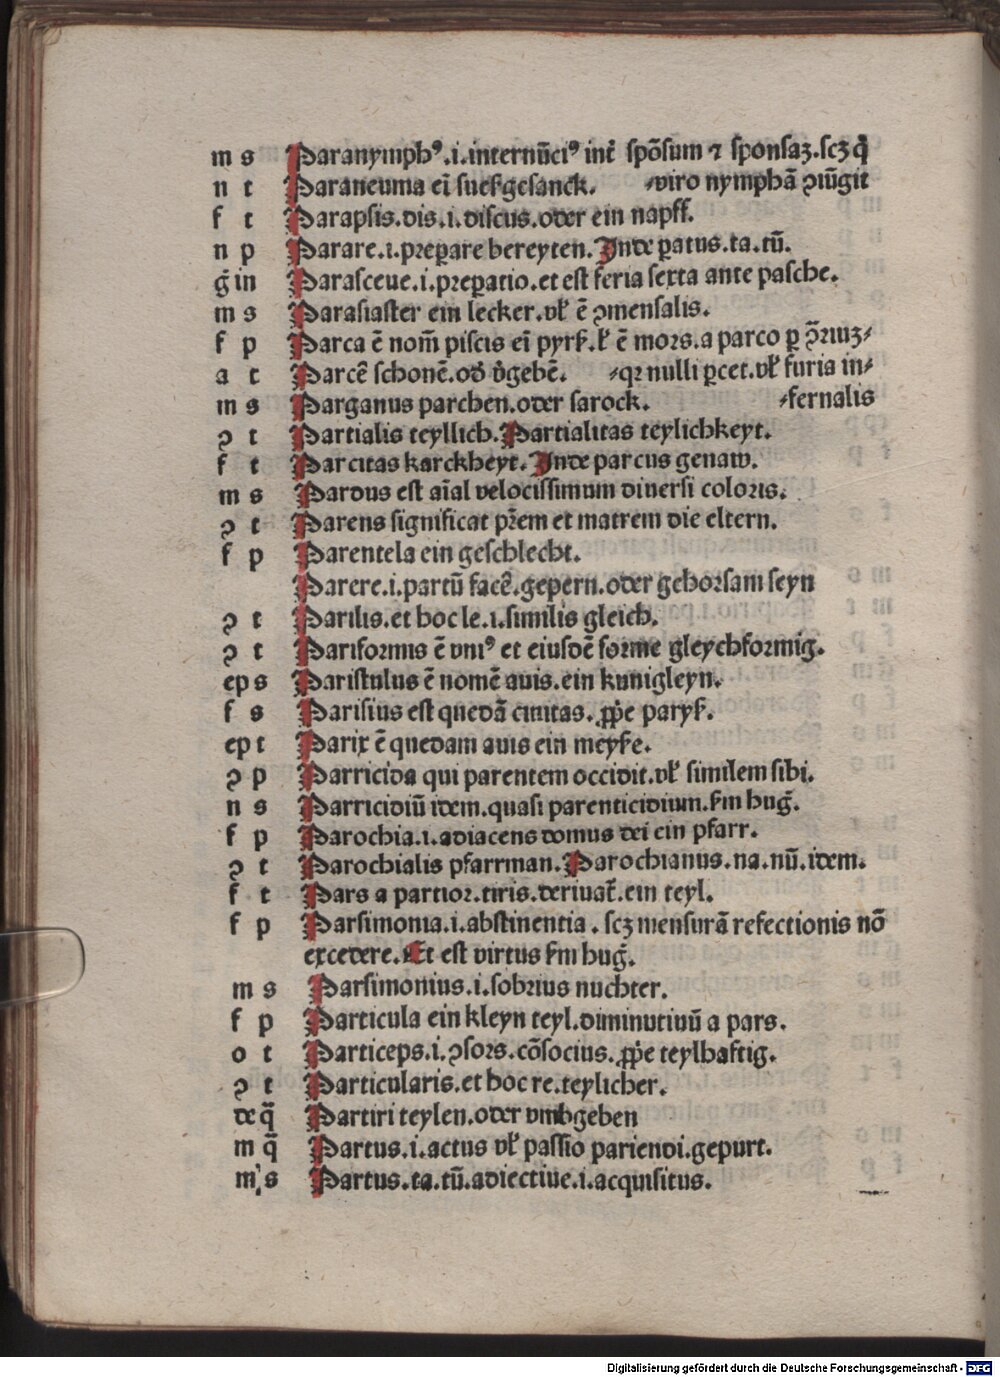 m s Paranymphꝰ.i.internūciꝰ int̄ spōsum ⁊ sponsaꝫ.scꝫ q̇
n t Paraneuma eī suesgesanck. ⸗viro nymphā ꝯiūgit
f t Parapsis.dis.i.discus.oder ein napff.
n p Parare.i.prep̲are bereyten. Inde p̲atus.ta.tū.
ḡ in Parasceue.i.prep̲atio.et est feria sexta ante pasche.
m s Parasiaster ein lecker.vł ē ꝯmensalis.
f p Parca ē nom̄ piscis eī pyrß.ł ē mors.a parco p̲ ꝯ̄riuꝫ⸗
a t Parcē schonē.od̄ v̄gebē. ⸗qꝛ nulli p̲cet.vł furia in⸗
m s Parganus parchen.oder sarock. ⸗fernalis
ꝯ t Partialis teyllich.Partialitas teylichkeyt.
f t Parcitas karckheyt. Inde parcus genaw.
m s Pardus est aīal velocissimum diuersi coloris.
ꝯ t Parens significat pr̄em et matrem die eltern.
f p Parentela ein geschlecht.
Parere.i.partū facē.gepern.oder gehorsam seyn
ꝯ t Parilis.et hoc le.i.similis gleich.
ꝯ t Pariformis ē vniꝰ et eiusdē forme gleychformig.
ep s Paristulus ē nomē auis.ein kunigleyn.
f s Parisius est quedā ciuitas. ꝓp̄e paryß.
ep t Parix ē quedam auis ein meyße.
ꝯ p Parricida qui parentem occidit.vł similem sibi.
n s Parricidiū idem.quasi parenticidium.ẜm huḡ.
f p Parochia.i.adiacens domus dei ein pfarr.
ꝯ t Parochialis pfarrman.Parochianus.na.nū.idem.
f t Pars a partior.tiris.deriuat̄.ein teyl.
f p Parsimonia.i.abstinentia.scꝫ mensurā refectionis nō
excedere.Et est virtus ẜm huḡ.
m s Parsimonius.i.sobrius nuchter.
f p Particula ein kleyn teyl.diminutiuū a pars.
o t Particeps.i.ꝯsors.cōsocius. ꝓp̄e teylhaftig.
ꝯ t Particularis.et hoc re.teylicher.
de q̄ Partiri teylen.oder vmbgeben
m q̄ Partus.i.actus vł passio pariendi.gepurt.
m s Partus.ta.tū.adiectiue.i.acquisitus.
Digitalisierung gefördert durch die Deutsche Forschungsgemeinschaft - DFG